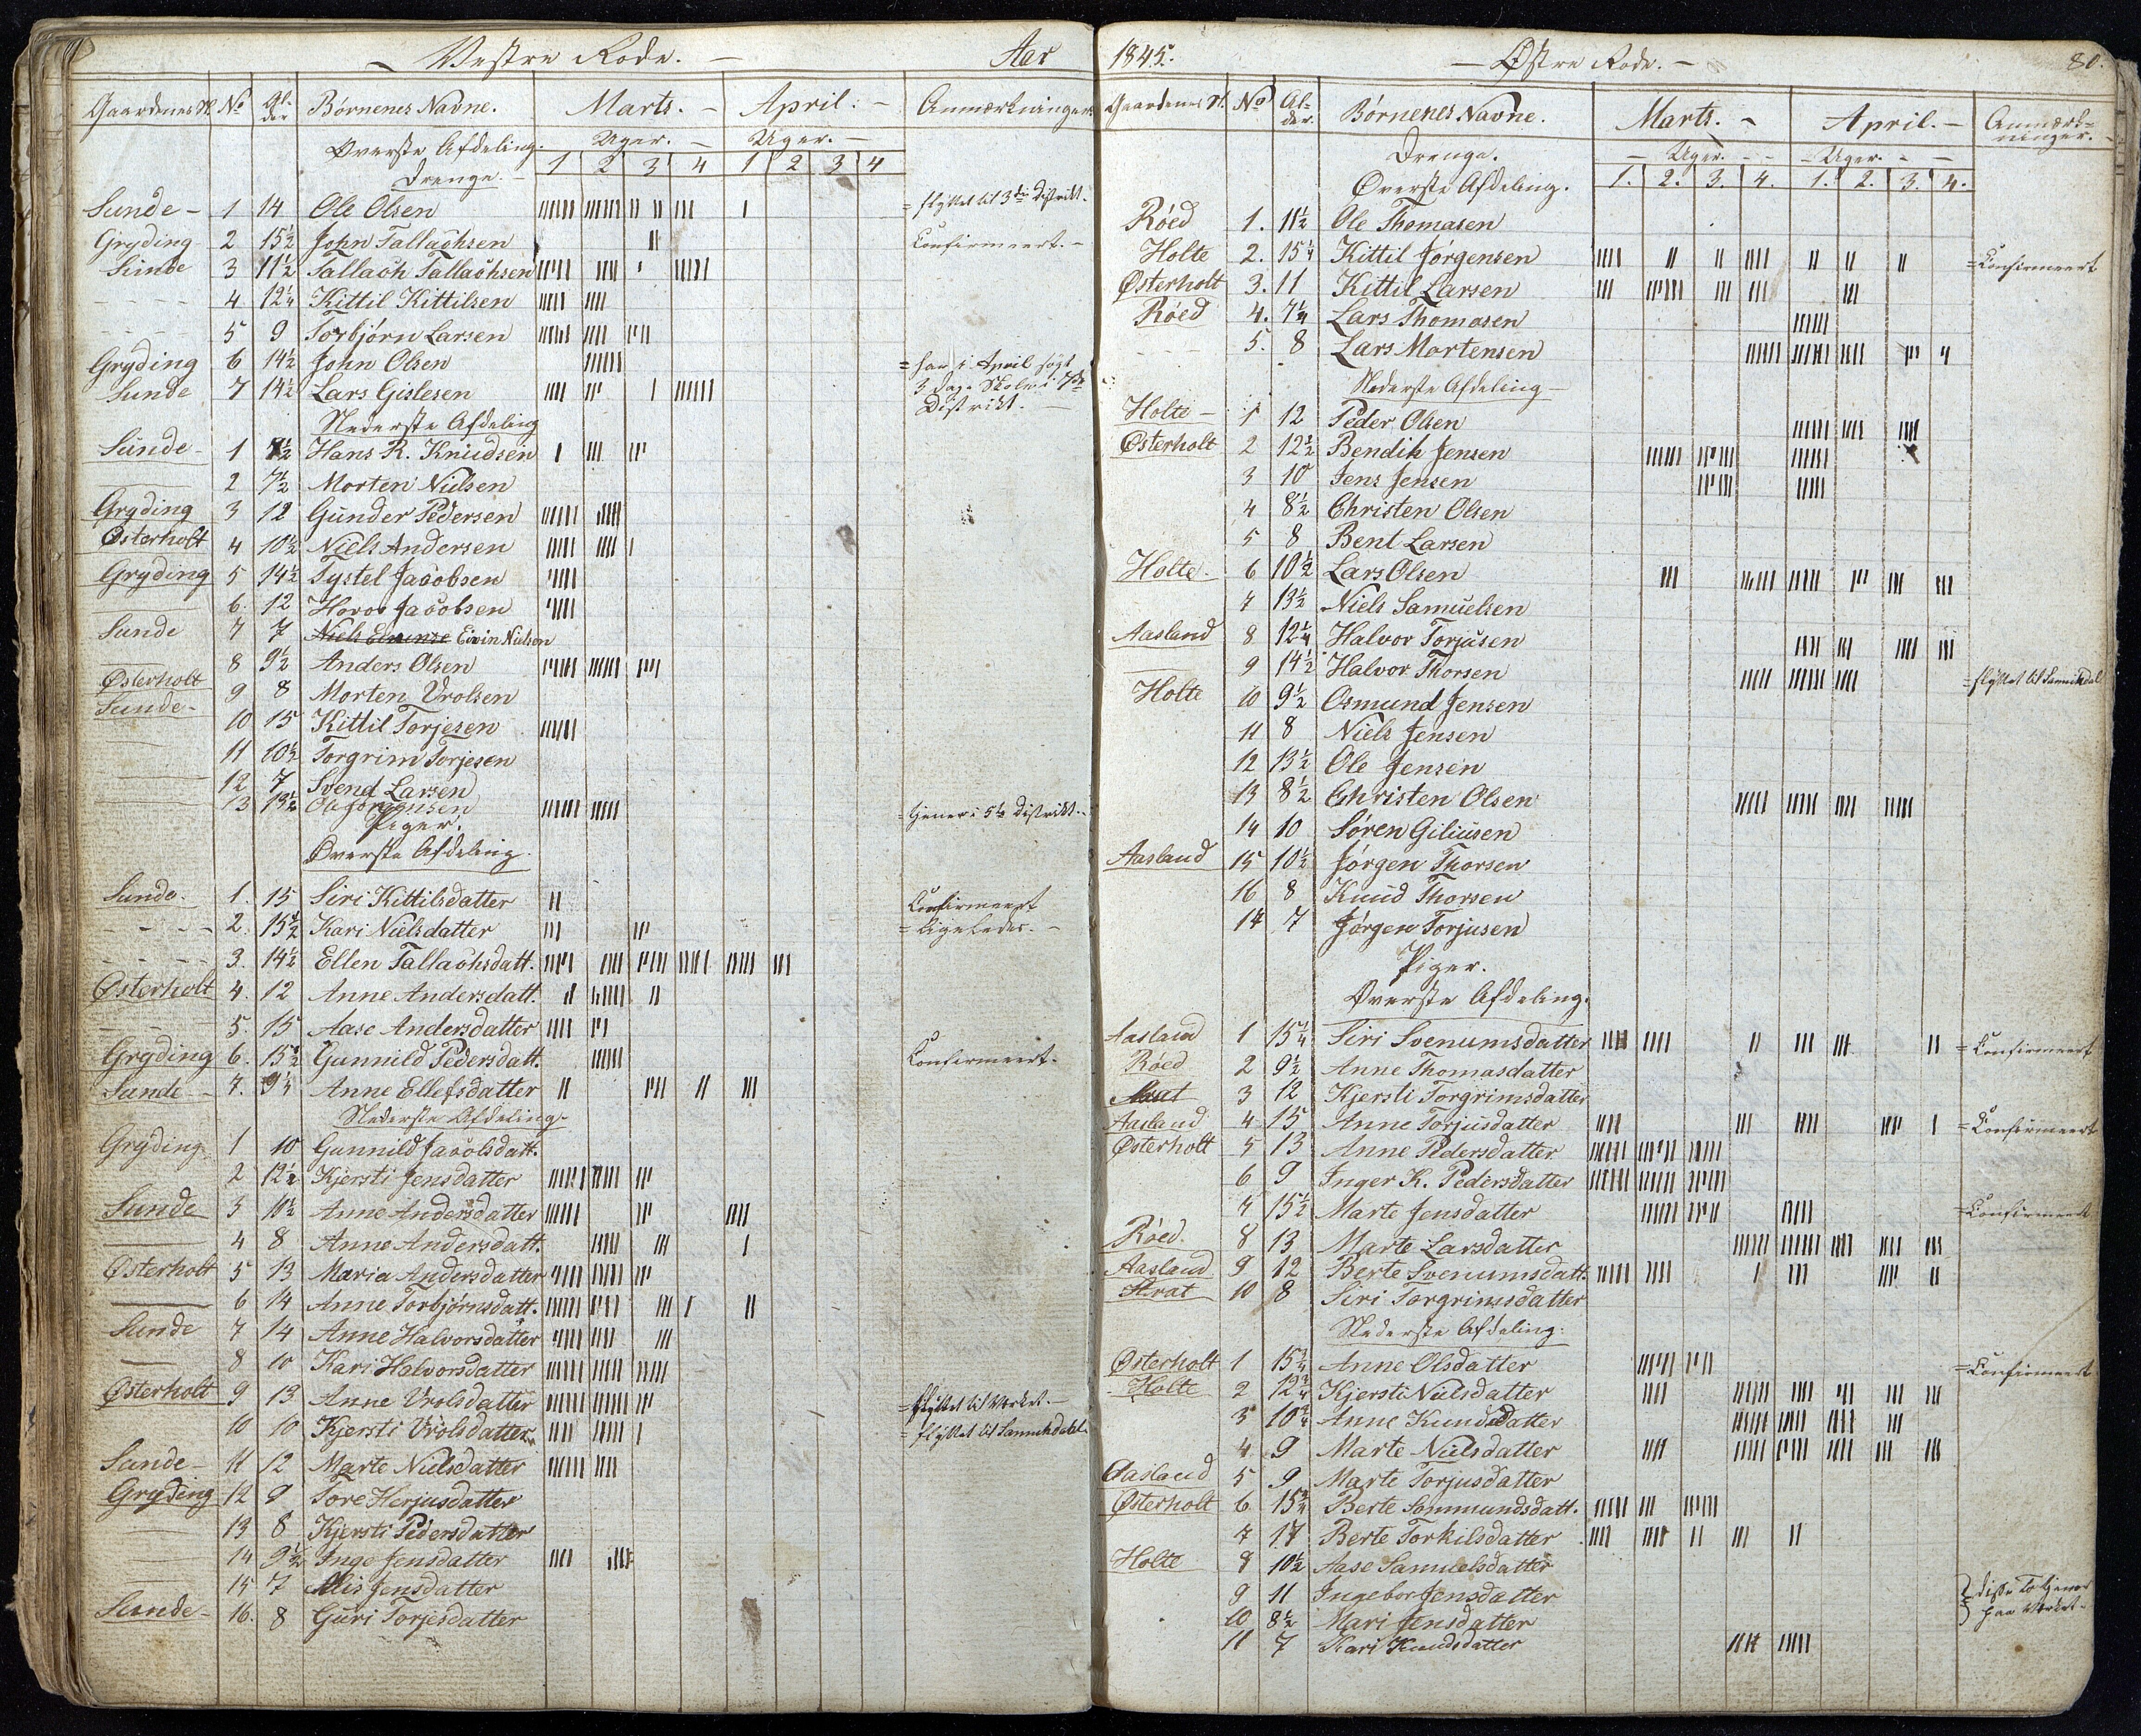 Vestre Rode. Aar
Gaardenes N. No Alder Børnenes Navne. Marts. April. Anmærkninger
Øverste Afdeling. Uger. Uger.
Drenge. 1 2 3 4 1 2 3 4
Sunde 1 14 Ole Olsen = flyttet til 3die Distrikt.
Gryding 2 15½ John Tallachsen Confirmeert.
Sunde 3 11½ Tallach Tallachsen
4 12¼ Kittil Kittilsen
5 9 Torbjørn Larsen
Gryding 6 14½ John Olsen = har i April søgt
Sunde 7 14½ Lars Gislesen 3 Dage Skole i 7de
Distrikt.
Nederste Afdeling
Sunde 1 7½ Hans R. Knudsen
2 7½ Morten Nielsen
Gryding 3 12 Gunder Pedersen
Østerholt 4 10½ Niels Andersen
Gryding 5 14½ Tystel Jacobsen
6. 12 Havor Jacobsen
Sunde 7 7 Eivin Nielsen
8 9½ Anders Olsen
Østerholt 9 8 Morten Vrolsen
Sunde 10 15 Kittil Torjesen
11 10½ Torgrim Torjesen
12 7 Svend Larsen
13 13½ Ole Jørgensen = tjener i 5te Distrikt.
Piger.
Øverste Afdeling.
Sunde. 1. 15 Siri Kittilsdatter Confirmeert
2. 15½ Kari Nielsdatter = ligeledes.
3. 14½ Ellen Tallachsdatt.
Østerholt 4. 12 Anne Andersdatt.
5. 15 Aase Andersdatter
Gryding 6. 15½ Gunnild Pedersdatt. Confirmeert.
Sunde 7. 9¼ Anne Ellefsdatter
Nederste Afdeling
Gryding 1 10 Gunnild Jacobsdatt.
2 12½ Kjersti Jensdatter
Sunde 3 10½ Anne Andersdatter
4 8 Anne Andersdatt.
Østerholt 5 13 Maria Andersdatter
6 14 Anne Torbjørnsdatt.
Sunde 7 14 Anne Halvorsdatter
8 10 Kari Halvorsdatter
Østerholt 9 13 Anne Vrolsdatter = flyttet til Værket.
10 10 Kjersti Vrolsdatter = flyttet til Sannikedal.
Sunde 11 12 Marte Nielsdatter
Gryding 12 9 Tore Herjusdatter
13 8 Kjersti Pedersdatter
14 9½ Inge Jensdatter
15 7 Alis Jensdatter
Sunde 16. 8 Guri Torjesdatter
1845. Østre Rode. 80.
Gaardenes N. No Alder. Børnenes Navne. Marts. April. Anmærkninger.
Drenge. Uger. Uger.
Øverste Afdeling. 1. 2. 3. 4. 1. 2. 3. 4.
Røed 1. 11½ Ole Thomasen
Holte 2. 15¼ Kittil Jørgensen = Confirmeert
Østerholt 3. 11 Kittil Larsen
Røed 4. 7¼ Lars Thomasen
5. 8 Lars Mortensen
Nederste Afdeling
Holte 1 12 Peder Olsen
Østerholt 2 12½ Bendik Jensen
3 10 Jens Jensen
4 8½ Christen Olsen
5 8 Bent Larsen
Holte. 6 10½ Lars Olsen
7 13½ Niels Samuelsen
Aasland 8 12¼ Halvor Torjusen
9 14½ Halvor Thorsen = flyttet til Sannikedal
Holte 10 9½ Osmund Jensen
11 8 Niels Jensen
12 13½ Ole Jensen
13 8½ Christen Olsen
14 10 Søren Giliusen
Aasland 15 10½ Jørgen Thorsen
16 8 Knud Thorsen
17 7 Jørgen Torjusen
Piger.
Øverste Afdeling.
Aasland 1 15¼ Siri Svenumsdatter = Confirmeert
Røed 2 9½ Anne Thomasdatter
3 12 Kjersti Torgrimsdatter
Aasland 4 15 Anne Torjusdatter = Confirmeert
Østerholt 5 13 Anne Pedersdatter
6 9 Inger K. Pedersdatter
7 15½ Marte Jensdatter = Confirmeert
Røed. 8 13 Marte Larsdatter
Aasland 9 12 Berte Svenumsdatt.
Hrat 10 8 Siri Torgrimsdatter
Nederste Afdeling.
Østerholt 1 15¾ Anne Olsdatter = Confirmeert
Holte 2 12¾ Kjersti Nielsdatter
3 10¾ Anne Kundsdatter
4 9 Marte Nielsdatter
Aasland 5 9 Marte Torjusdatter
Østerholt 6 15¾ Berte Sommundsdatt.
7 17 Berte Torkilsdatter
Holte 8 10½ Aase Samuelsdatter
9 11 Ingebor Jensdatter } disse To tjener
10 8½ Mari Jensdatter paa Værket.
11 7 Kari Knudsdatter